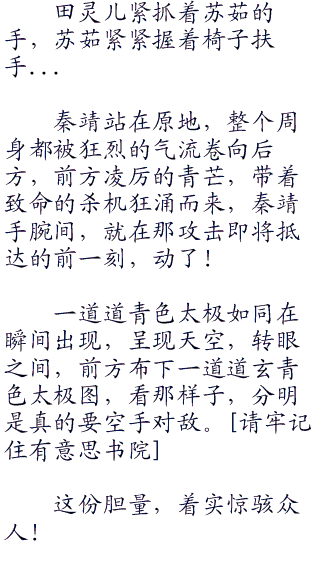 田灵儿紧抓着苏茹的
手，苏茹紧紧握着椅子扶
手...
秦靖站在原地，整个周
身都被狂烈的气流卷向后
方，前方凌厉的青芒，带着
致命的杀机狂涌而来，秦靖
手腕间，就在那攻击即将抵
达的前一刻，动了！
一道道青色太极如同在
瞬间出现，呈现天空，转眼
之间，前方布下一道道玄青
色太极图，看那样子，分明
是真的要空手对敌。[请牢记
住有意思书院]
这份胆量，着实惊骇众
人！